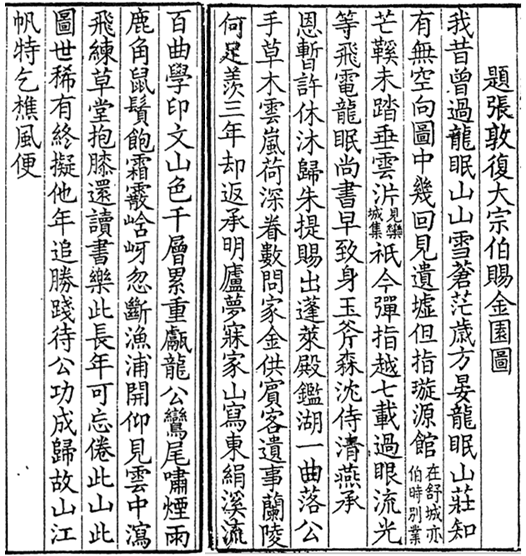 題張敦復大宗伯賜金園圖
我昔曾過龍眠山山雪蒼茫歲方晏龍眠山莊知
有無空向圖中幾回見遺墟但指璇源館在舒城亦伯時別業
芒鞵未踏垂雲沜見欒城集祇今彈指越七載過眼流光
等飛電龍眠尚書早致身玉斧森沈侍清燕承
恩暫許休沐歸朱提賜出蓬萊殿鑑湖一曲落公
手草木雲嵐荷深眷數問家金供賓客遺事蘭陵
何足羨三年却返承明廬夢寐家山寫東絹溪流
百曲學印文山色千層累重甗龍公鸞尾嘯煙雨
鹿角鼠鬚飽霜霰谽岈忽斷漁浦開仰見雲中瀉
飛練草堂抱膝還讀書樂此長年可忘倦此山此
圖世稀有終擬他年追勝踐待公功成歸故山江
帆特乞樵風便